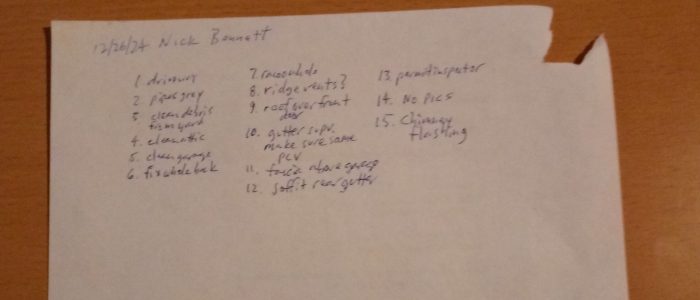 12/26/24 Nick Bennett
1. driveway
2. pipes grey
3. clean debris
from yard
4. clean attic
5. clean garage
6. fix whole back
7. racoon hole
8. ridge vents 3
9. roof over front
door
10. gutter supv.
make sure same
PCV
11. fascia above garage
12. soffit rear gutter
13. permit inspector
14. No pics
15. Chimney
flashing